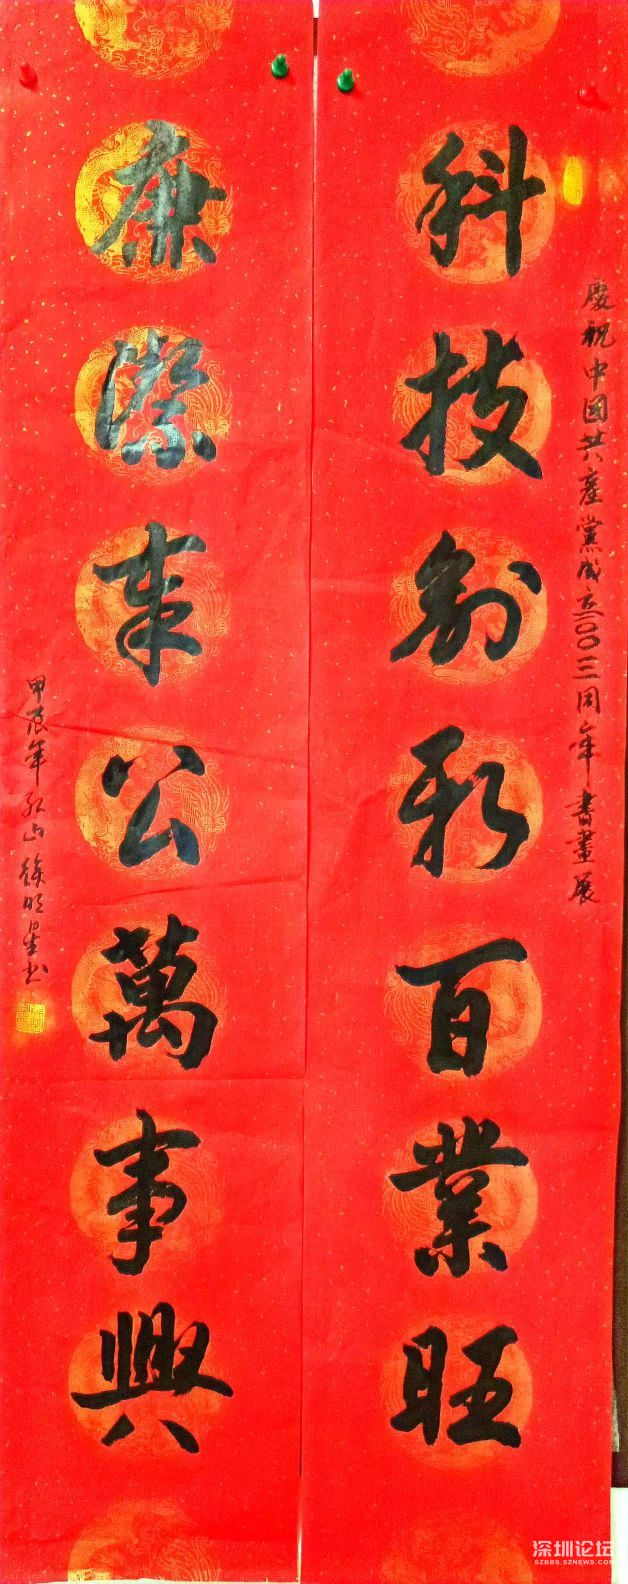 慶祝中國共產黨成立一〇〇三周年書畫展
科技創新百業旺
廉潔奉公萬事興
甲辰年 徐明星书
深圳论坛
SZBBS.SZNEWS.COM